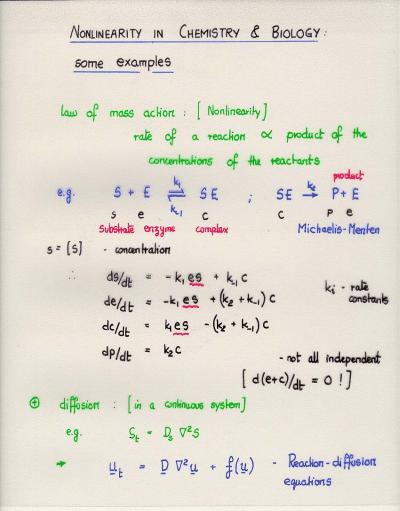 NONLINEARITY IN CHEMISTRY & BIOLOGY:
some examples
Law of mass action : [Nonlinearity]
rate of a reaction ∝ product of the
concentrations of the reactants
product
e.g. S + E ⇌ SE ; SE → P + E
k₁ k₋₁ k₂
s e c c p e
substrate enzyme complex Michaelis-Menten
s = [S] - concentration
∴ ds/dt = -k₁es + k₋₁c
kᵢ - rate constants
de/dt = -k₁es + (k₂ + k₋₁)c
dc/dt = k₁es - (k₂ + k₋₁)c
dp/dt = k₂c
- not all independent
[d(e+c)/dt = 0 !]
⊕ diffusion : [in a continuous system]
e.g. Sₜ = Dₛ ∇²S
→ uₜ = D ∇²u + f(u) - Reaction-diffusion
equations